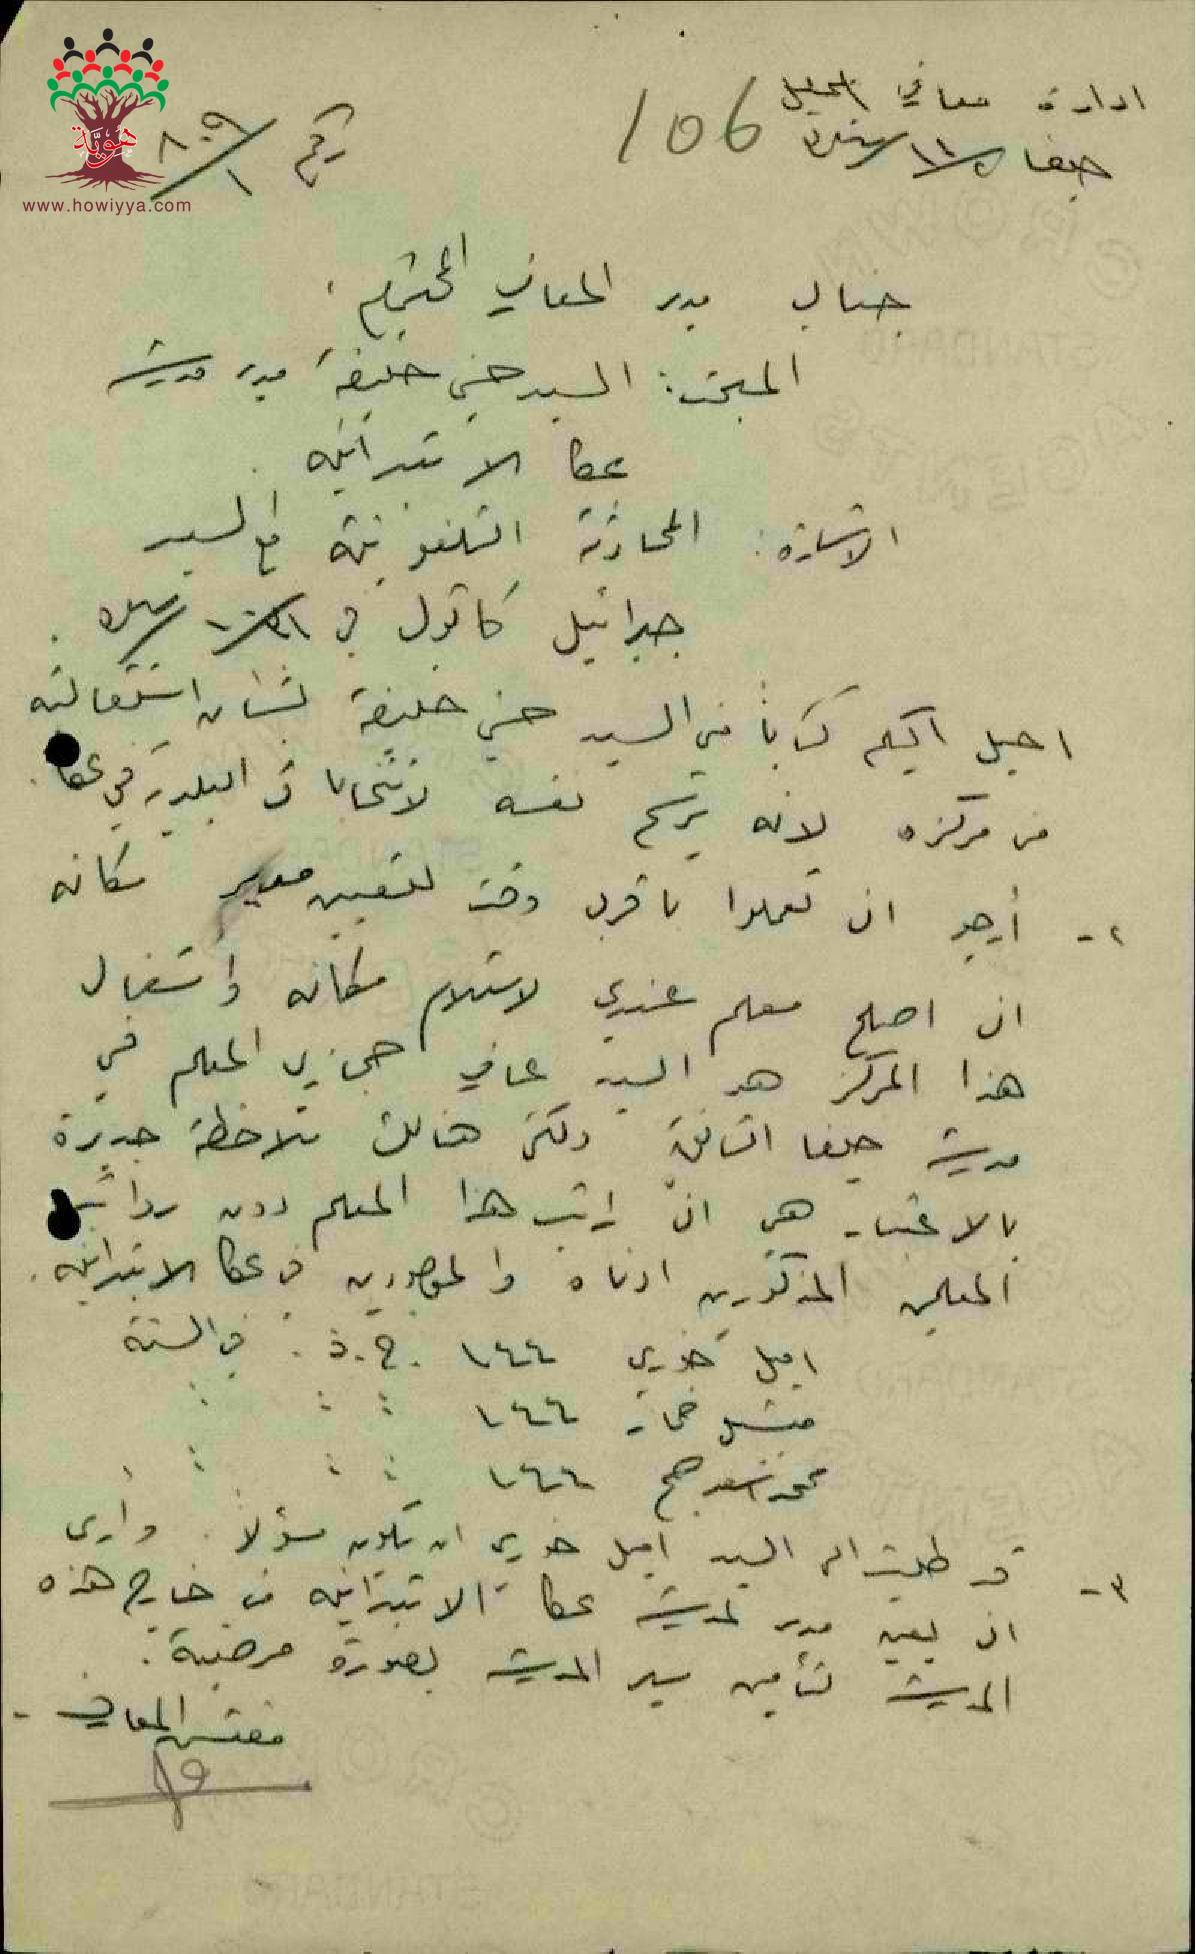 هويّة
www.howiyya.com
ادارة معارف الجليل
حيفا
106
رقم ٨٠٩/١
جناب مدير المعارف المحترم.
المبحث: السيد حسني خليفة مدير مدرسة
عكا الابتدائية.
الاشارة: المحادثة التلفونية مع السيد
جبرائيل كاتول في
احيل اليكم كتاباً من السيد حسني خليفة بشأن استقالته
من مركزه لانه يرشح نفسه لانتخابات البلدية في عكا.
٢- أرجو ان تعملوا باقرب وقت لتعيين مدير مكانه
ان اصلح معلم عندي لاستلام مكانه وأشغال
هذا المركز هو السيد عارف حجازي المعلم في
مدرسة حيفا الثانوية ولكن هنالك ملاحظة جديرة
بالاعتبار هي ان راتب هذا المعلم دون رواتب
المعلمين المذكورين ادناه والموجودين في عكا الابتدائية.
اميل خوري ١٤٤ ج.ف. في السنة
ميشيل ١٤٤ " " "
محمد ١٤٤ " " "
٣- قد طلبت الى السيد اميل خوري ان يكون مسؤلاً. وأرى
ان يعين مدير لمدرسة عكا الابتدائية من خارج هذه
المدرسة لتأمين سير المدرسة بصورة مرضية.
مفتش المعارف -